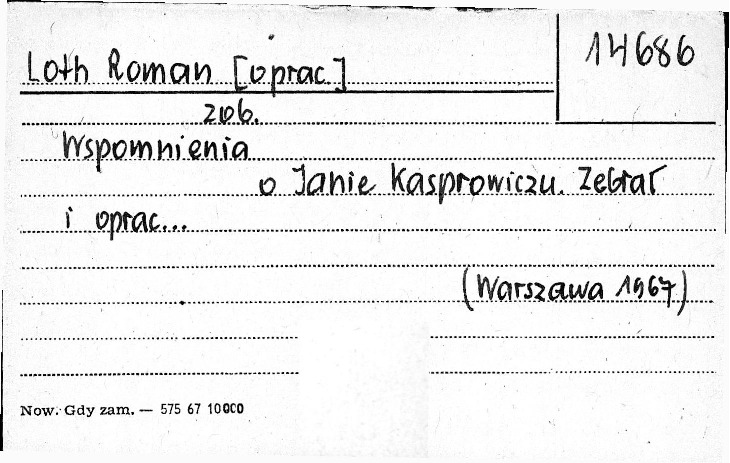 14686
Loth Roman [oprac.]
zob.
Wspomnienia
o Janie Kasprowiczu. Zebrał
i oprac...
(Warszawa 1967)
Now. Gdy zam. — 575 67 10000